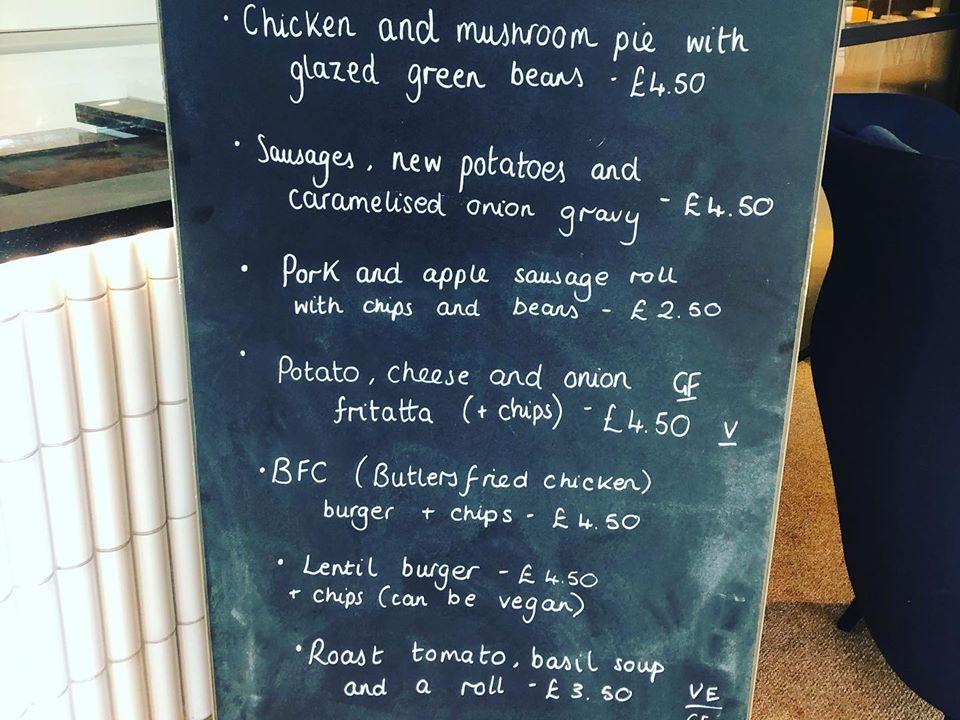 • Chicken and mushroom pie with
glazed green beans - £4.50
• Sausages, new potatoes and
caramelised onion gravy - £4.50
• Pork and apple sausage roll
with chips and beans - £2.50
• Potato, cheese and onion GF
fritatta (+ chips) - £4.50 V
• BFC (Butlers fried chicken)
burger + chips - £4.50
• Lentil burger - £4.50
+ chips (can be vegan)
• Roast tomato, basil soup
and a roll - £3.50 VE
GF